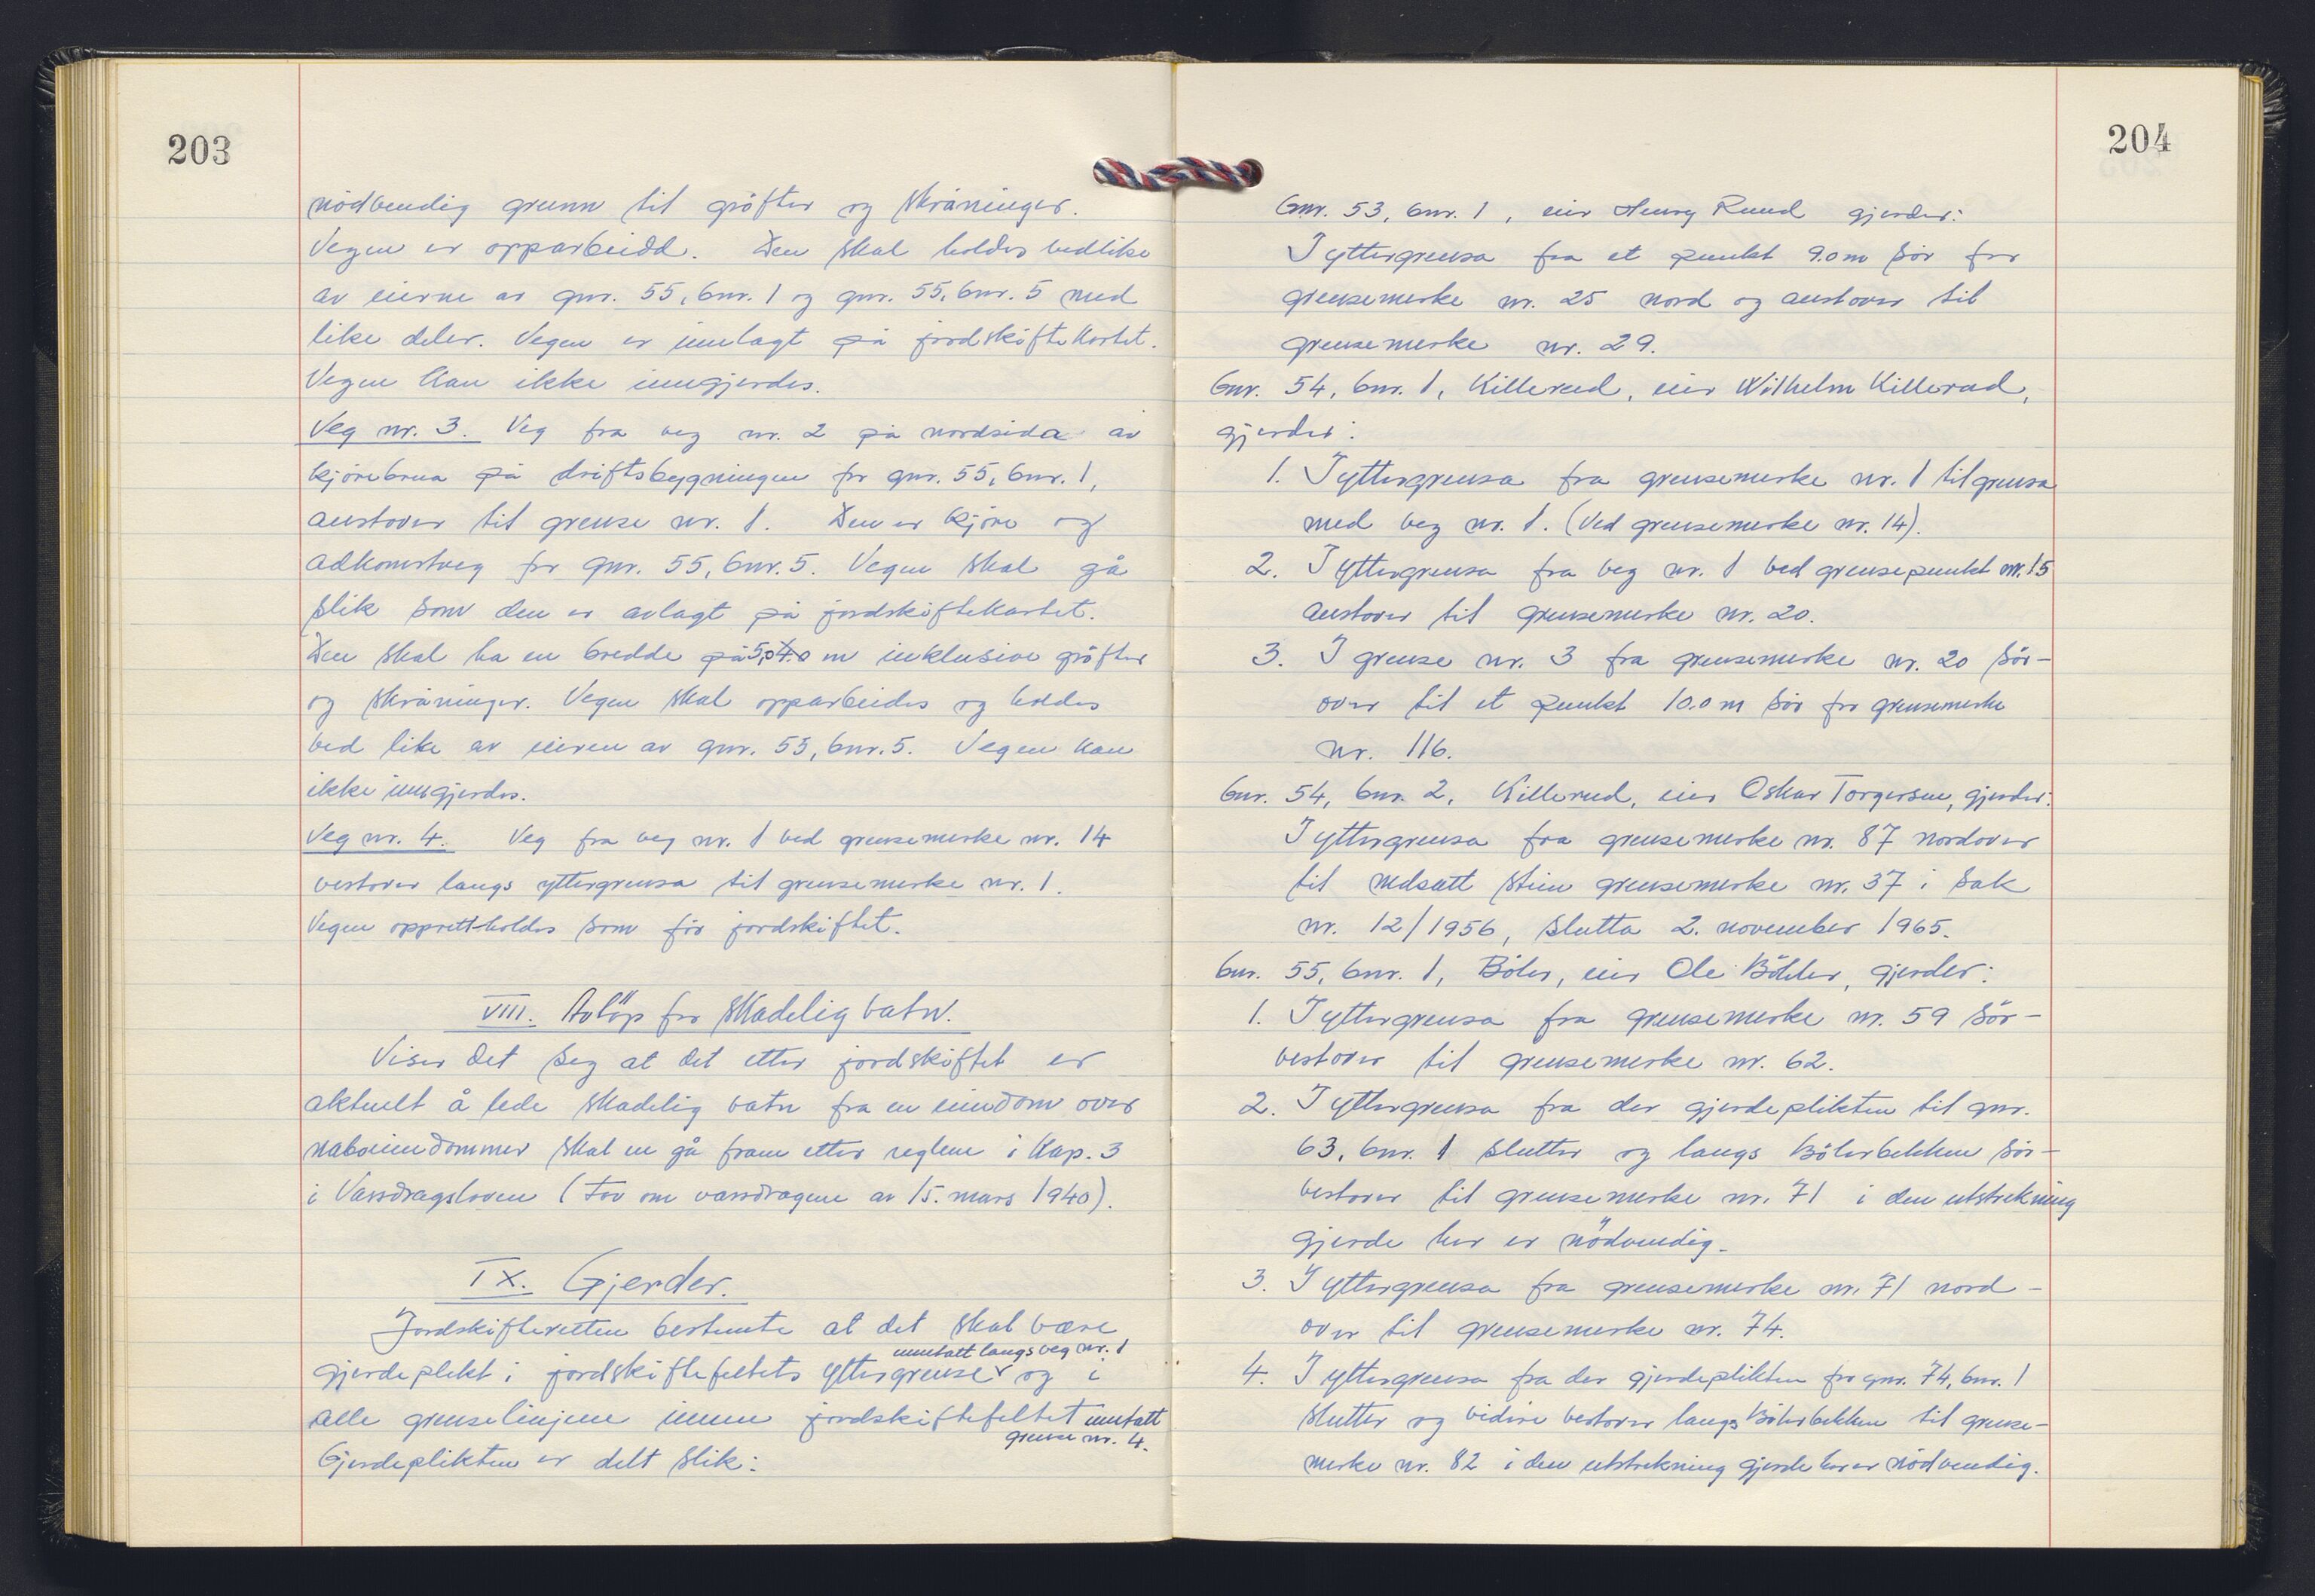 203
nödvendig grunn til gröfter og skråninger.
Vegen er opparbeidd. Den skal holdes vedlike
av eierne av gnr. 55, bnr. 1 og gnr. 55, bnr. 5 med
like deler. Vegen er innlagt på jordskiftekartet.
Vegen kan ikke inngjerdes.
Veg nr. 3. Veg fra veg nr. 2 på nordsida av
kjörebrua på driftsbygningen for gnr. 55, bnr. 1,
austover til grense nr. 1. Den er kjöre og
adkomstveg for gnr. 55, bnr. 5. Vegen skal gå
slik som den er avlagt på jordskiftekartet.
Den skal ha en bredde på 5,0 m inklusive gröfter
og skråninger. Vegen skal opparbeides og holdes
ved like av eieren av gnr. 55, bnr. 5. Vegen kan
ikke inngjerdes.
Veg nr. 4. Veg fra veg nr. 1 ved grensemerke nr. 14
vestover langs yttergrensa til grensemerke nr. 1.
Vegen opprettholdes som för jordskiftet.
VIII. Avlöp for skadelig vatn.
Viser det seg at det etter jordskiftet er
aktuelt å lede skadelig vatn fra en eiendom over
naboeiendommer skal en gå fram etter reglene i Kap. 3
i Vassdragsloven (Lov om vassdragene av 15. mars 1940).
IX. Gjerder.
Jordskifteretten bestemte at det skal være
unntatt langs veg nr. 1
gjerdeplikt i jordskiftefeltets yttergrense og i
alle grenselinjene innen jordskiftefeltet unntatt
grense nr. 4.
Gjerdeplikten er delt slik:
204
Gnr. 53, bnr. 1, eier Henry Ruud gjerder:
I yttergrensa fra et punkt 9.0 m sör for
grensemerke nr. 25 nord og austover til
grensemerke nr. 29.
Gnr. 54, bnr. 1, Killerud, eier Wilhelm Killerud,
gjerder:
1. I yttergrensa fra grensemerke nr. 1 til grensa
med veg nr. 1. (Ved grensemerke nr. 14).
2. I yttergrensa fra veg nr. 1 ved grensepunkt nr. 15
austover til grensemerke nr. 20.
3. I grense nr. 3 fra grensemerke nr. 20 sör-
over til et punkt 10.0 m sör for grensemerke
nr. 116.
Gnr. 54, bnr. 2, Killerud, eier Oskar Torgersen, gjerder:
I yttergrensa fra grensemerke nr. 87 nordover
til nedsatt stein grensemerke nr. 37 i sak
nr. 12/1956, slutta 2. november 1965.
Gnr. 55, bnr. 1, Böler, eier Ole Böhler, gjerder:
1. I yttergrensa fra grensemerke nr. 59 sör-
vestover til grensemerke nr. 62.
2. I yttergrensa fra der gjerdeplikten til gnr.
63, bnr. 1 slutter og langs Bölerbekken sör-
vestover til grensemerke nr. 71 i den utstrekning
gjerde her er nödvendig.
3. I yttergrensa fra grensemerke nr. 71 nord-
over til grensemerke nr. 74.
4. I yttergrensa fra der gjerdeplikten for gnr. 74, bnr. 1
slutter og videre vestover langs Bölerbekken til grense-
merke nr. 82 i den utstrekning gjerde her er nödvendig.